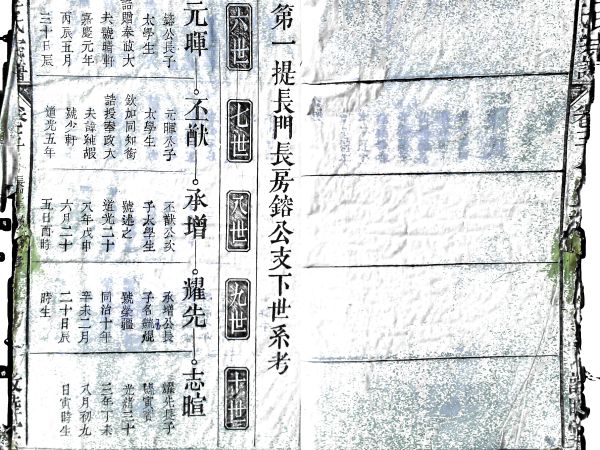 第一提長門長房鎔公支下世系考
六世
七世
八世
九世
十世
元暉
丕猷
承增
耀先
志暄
鎔公長子
太學生
誥贈奉政大
夫號晴軒
嘉慶元年
丙辰五月
三十日辰
元暉公子
太學生
欽加同知銜
誥授奉政大
夫諱純嘏
號少軒
道光五年
丕猷公次
子太學生
號述之
道光二十
八年戊申
六月二十
五日酉時
承增公長
同治十年
辛未二月
二十日辰
時生
耀先長子
光緒三十
三年丁未
八月初九
日寅時生